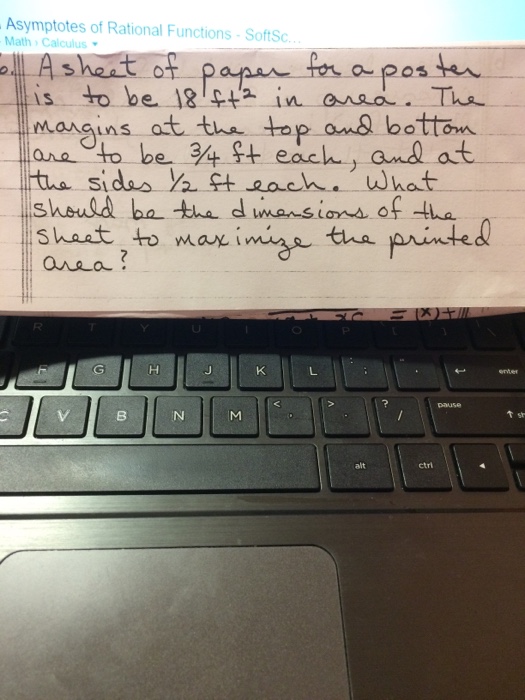 Asymptotes of Rational Functions - SoftSc...
Math › Calculus
A sheet of paper for a poster
is to be 18 ft² in area. The
margins at the top and bottom
are to be 3/4 ft each, and at
the sides 1/2 ft each. What
should be the dimensions of the
sheet to maximize the printed
area?
R T Y U I O P [ ] \
F G H J K L ; enter
C V B N M < , > . ? / pause
alt ctrl